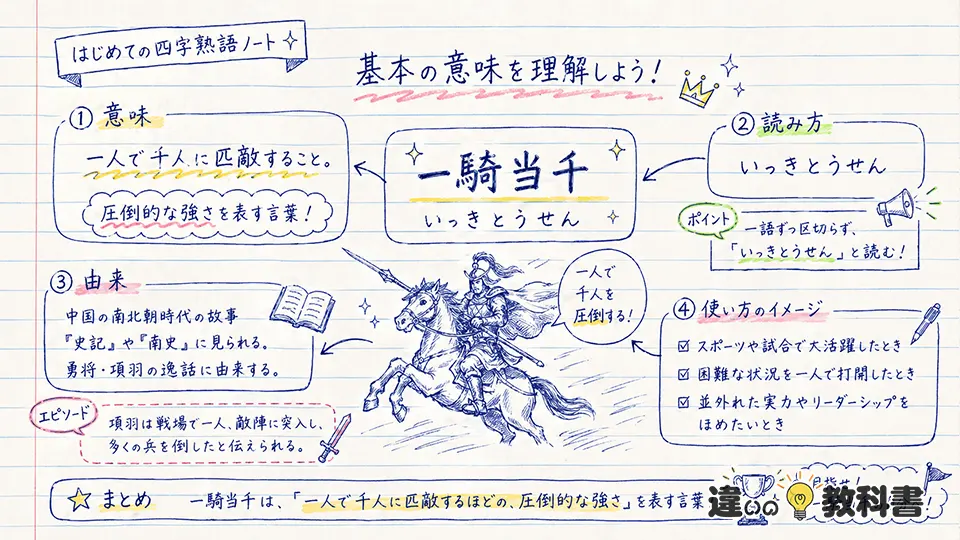 はじめての四字熟語ノート
基本の意味を理解しよう！
① 意味
一人で千人に匹敵すること。
圧倒的な強さを表す言葉！
一騎当千
いっきとうせん
② 読み方
いっきとうせん
ポイント
一語ずつ区切らず、
「いっきとうせん」と読む！
③ 由来
中国の南北朝時代の故事
『史記』や『南史』に見られる。
勇将・項羽の逸話に由来する。
エピソード
項羽は戦場で一人、敵陣に突入し、
多くの兵を倒したと伝えられる。
一人で
千人を
圧倒する！
④ 使い方のイメージ
スポーツや試合で大活躍したとき
困難な状況を一人で打開したとき
並外れた実力やリーダーシップを
ほめたいとき
まとめ
一騎当千は、「一人で千人に匹敵するほどの、圧倒的な強さ」を表す言葉
目指せ！
違いの教科書